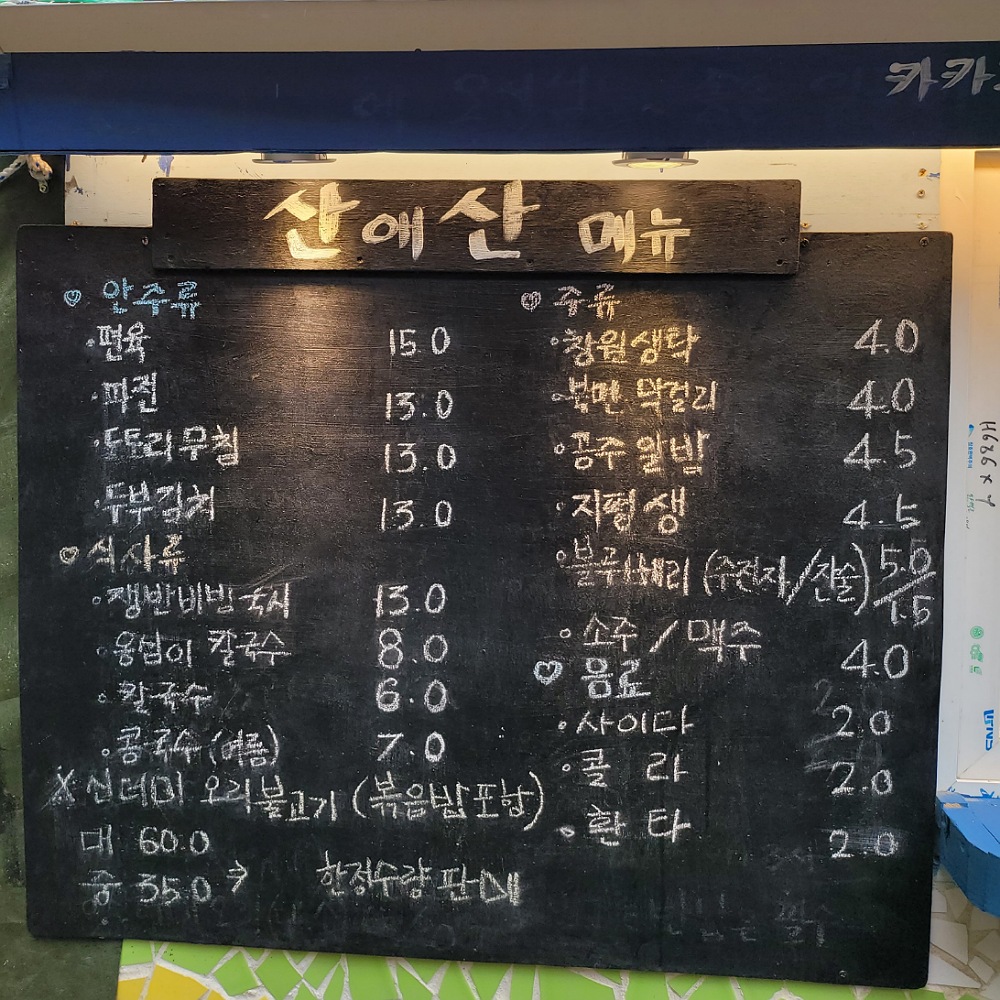 카카
산에산 메뉴
♡ 안주류
·편육 15.0
·파전 13.0
·도토리무침 13.0
·두부김치 13.0
♡ 식사류
·쟁반비빔국시 13.0
·옹심이 칼국수 8.0
·칼국수 6.0
·콩국수 (여름) 7.0
※ 신더미 오리불고기 (볶음밥포함)
대 60.0
중 35.0 → 한정수량 판매
♡ 주류
·창원생탁 4.0
·북면 막걸리 4.0
·공주 알밤 4.5
·지평생 4.5
·블루베리 (주전자/잔술) 5.0/1.5
·소주 / 맥주 4.0
♡ 음료
·사이다 2.0
·콜라 2.0
·환타 2.0